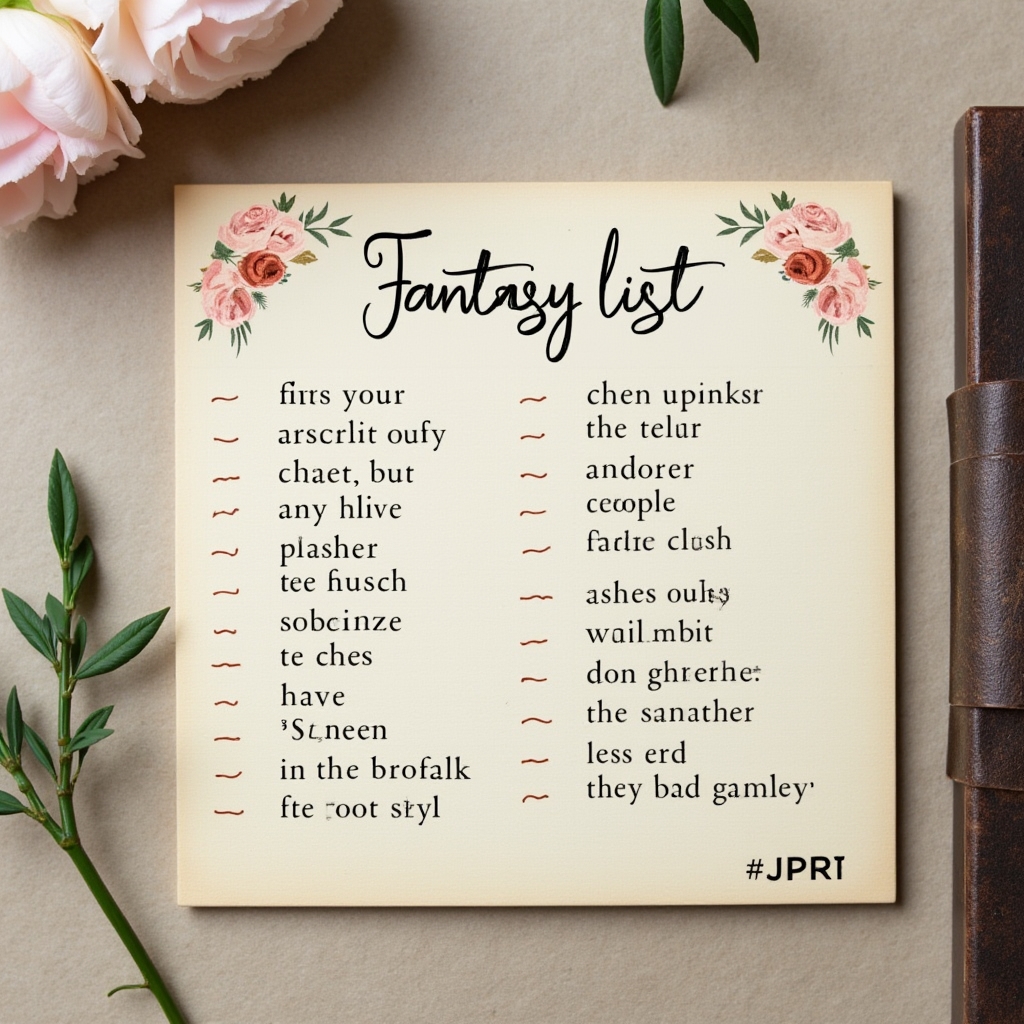 Fantasy list
firrs your
arscrlit oufy
chaet, but
any hlive
plasher
tee fiusch
sobcinze
te ches
have
in the brofalk
fte oot styl
chen upinksr
the telur
andorer
ceople
farlre clush
ashes
wail.mbit
don
the sanather
less erd
they bad gamley'
#JPRT